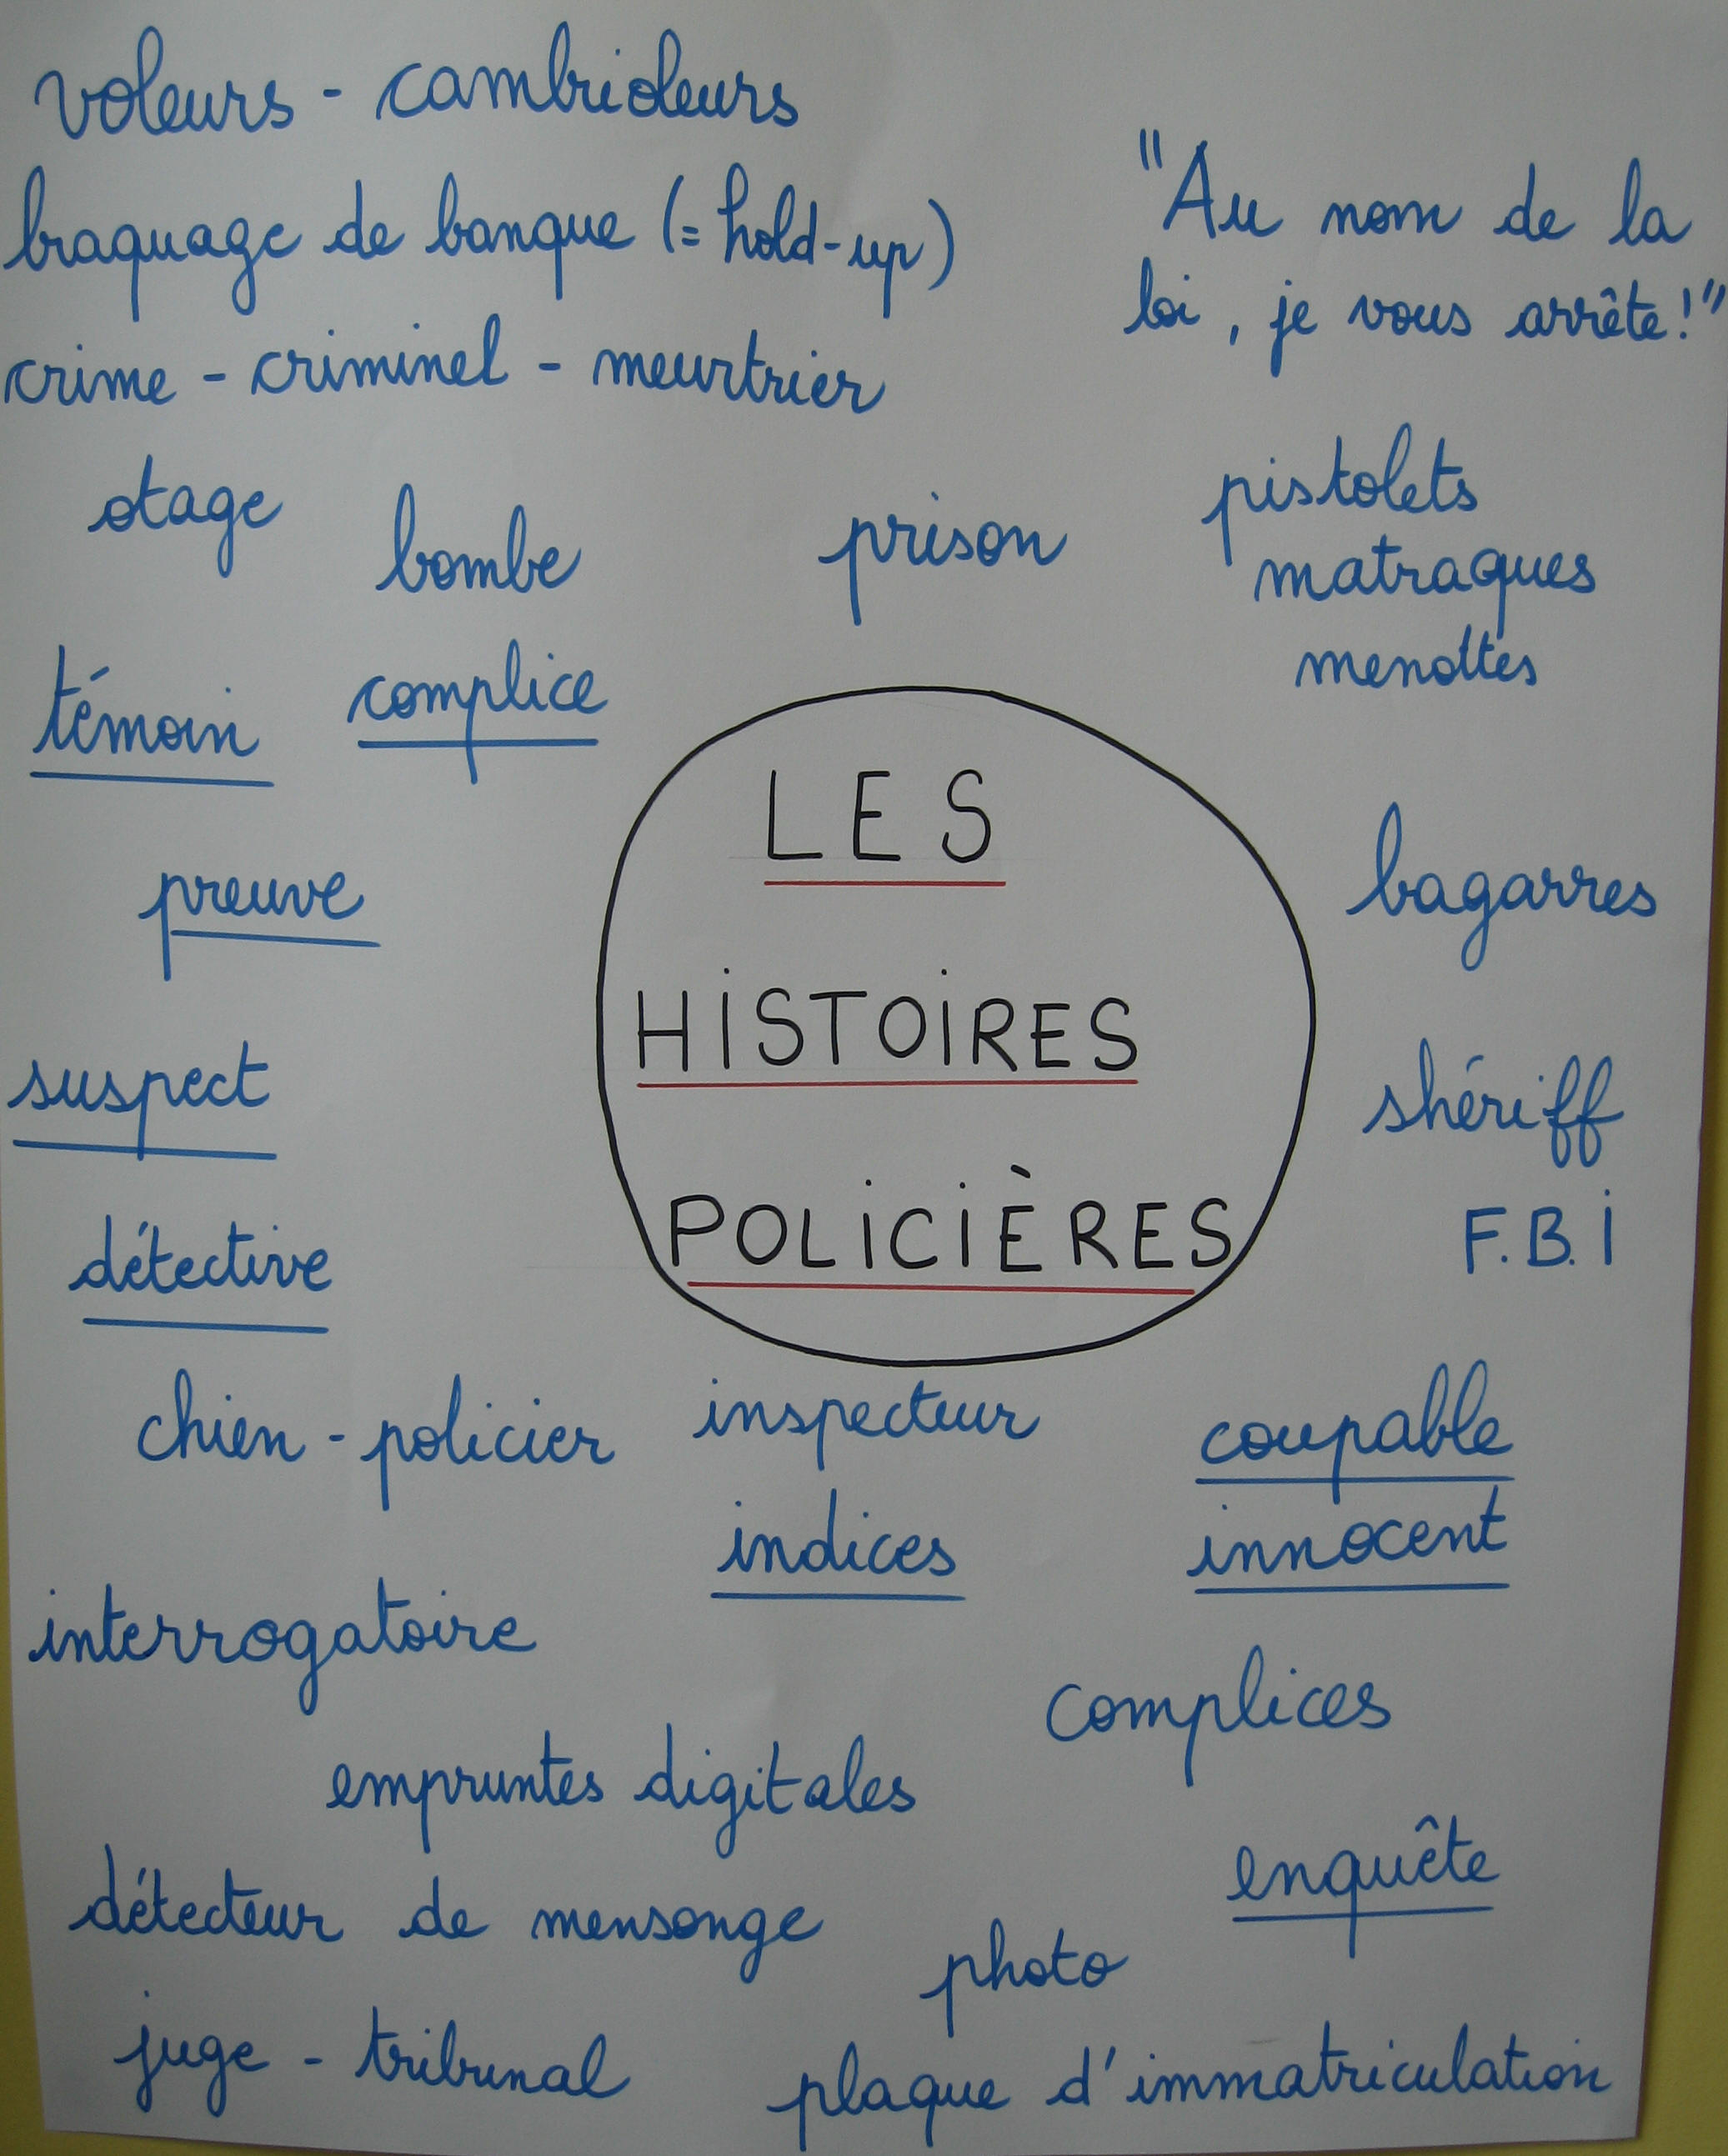 voleurs - cambrioleurs
braquage de banque (= hold-up)
crime - criminel - meurtrier
"Au nom de la
loi, je vous arrête!"
otage
bombe
prison
pistolets
matraques
menottes
témoin
complice
LES
HISTOIRES
POLICIÈRES
preuve
bagarres
suspect
shériff
détective
F.B.I
chien - policier
inspecteur
coupable
indices
innocent
interrogatoire
complices
empruntes digitales
enquête
détecteur de mensonge
photo
juge - tribunal
plaque d'immatriculation